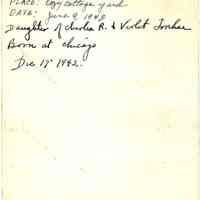 PLACE: Cozy Cottage yard
DATE: June 9, 1948
Daughter of Charles R. & Violet
Born at Chicago
Dec 17 1942.